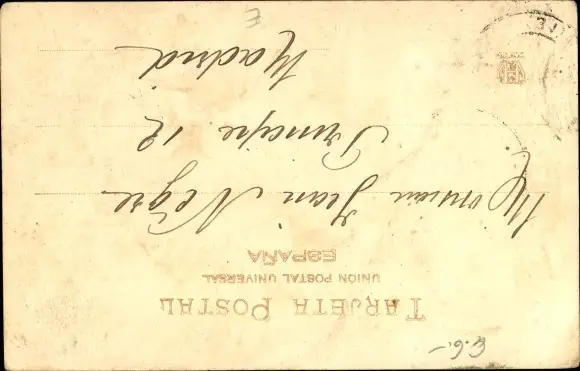 E.6.-
TARJETA POSTAL
UNIÓN POSTAL UNIVERSAL
ESPAÑA
Monsieur Jean Nègre
Principe 12
Madrid